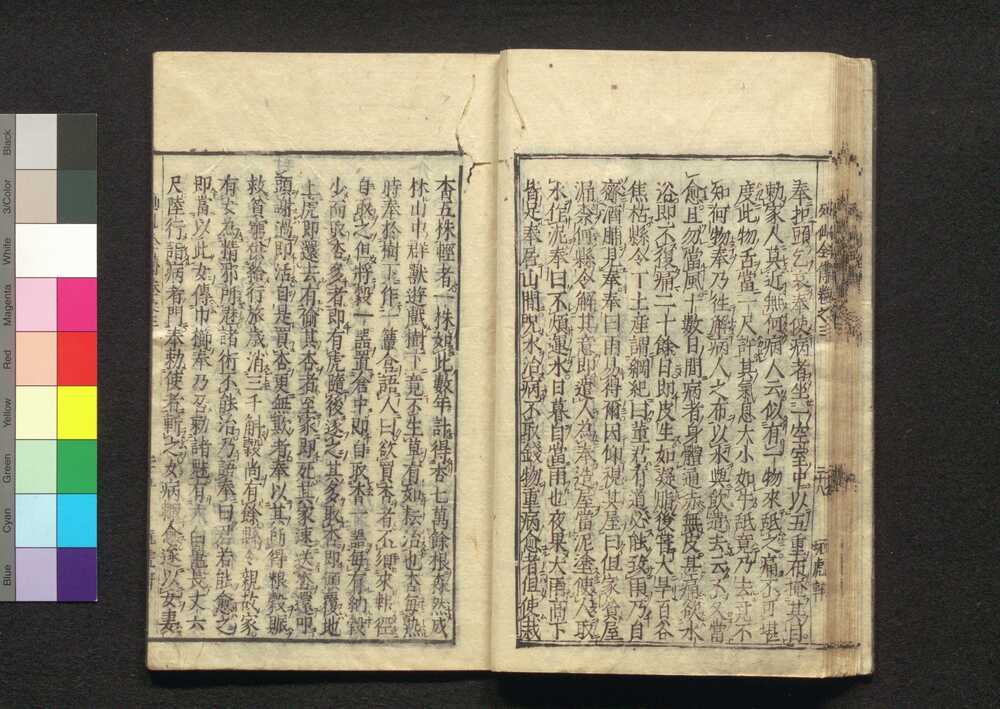 奉扣頭乞哀奉使病者坐一室室中以五重布掩其目
勅家人莫近無何病人云似有一物來舐之痛不可堪
度此物舌當一尺許其氣息大小如牛舐竟乃去也不
知何物奉乃往解病人之布以水與飲遣去云不久當
愈且勿當風十數日間病者身體通赤無皮甚痛飲水
浴即不復痛二十餘日即皮生如凝脂後嘗大旱百谷
焦枯縣令丁士彦謂綱紀曰董君有道必能致雨乃自
齎酒脯見奉奉曰雨易得爾因仰視其屋曰但家貧屋
漏奈何縣令解其意即遣人為奉造屋當泥塗使人取
水作泥奉曰不煩運水日暮自當雨也夜果大雨高下
皆足奉居山間呪水治病不取錢物重病愈者但使栽
杏五株輕者一株如此數年計得杏七萬餘根森然成
林山中群獸遊戲樹下竟不生草有如耘治也杏每熟
時奉於樹下作一簞倉語人曰欲買杏者不須來報徑
自取之但將穀一器置倉中即自取杏一器每有納穀
少而取杏多者即有虎隨後逐之其多取杏即傾覆地
上虎即還去有偷其杏者至家即死其家速送杏還叩
頭謝過即活自是買杏更無欺者奉以其所得粮穀賑
救貧窮供給行旅歲消三千斛穀尚有餘縣令親故家
有女為精邪所魅諸術不能治乃語奉曰君若能愈之
即當以此女傳巾櫛奉乃召勅諸魅有大白鼉長丈六
尺陸行詣病者門奉勅使者斬之女病輙愈遂以女妻